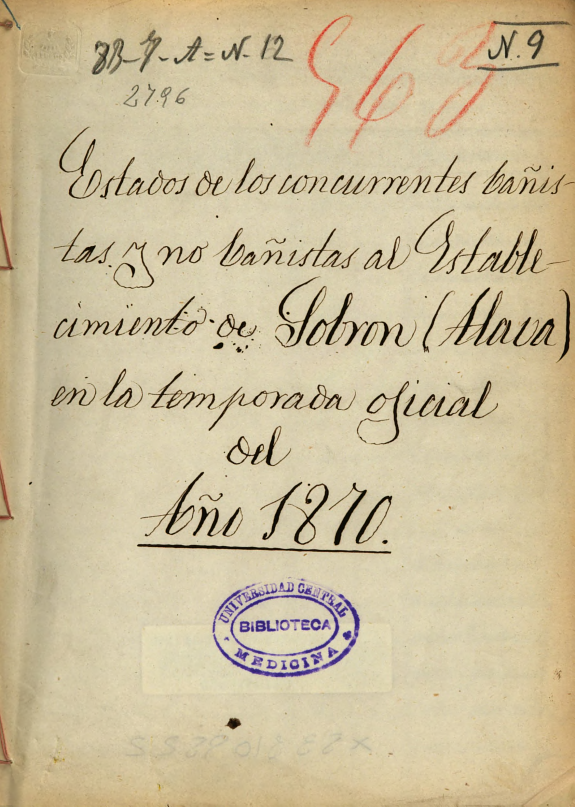 88-7-A=N.12
N.9
2796
Estados de los concurrentes bañis-
tas y no bañistas al Estable-
cimiento de Sobron (Alava)
en la temporada oficial
del
Año 1870.
UNIVERSIDAD CENTRAL
BIBLIOTECA
MEDICINA